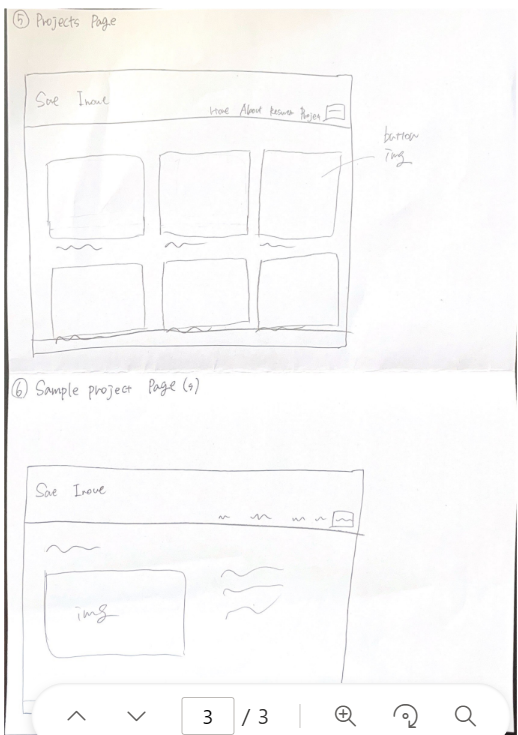 ⑤ Projects Page
Sae Inoue
Home About Resume
button
img
⑥ Sample project Page (s)
Sae Inoue
img
3 / 3